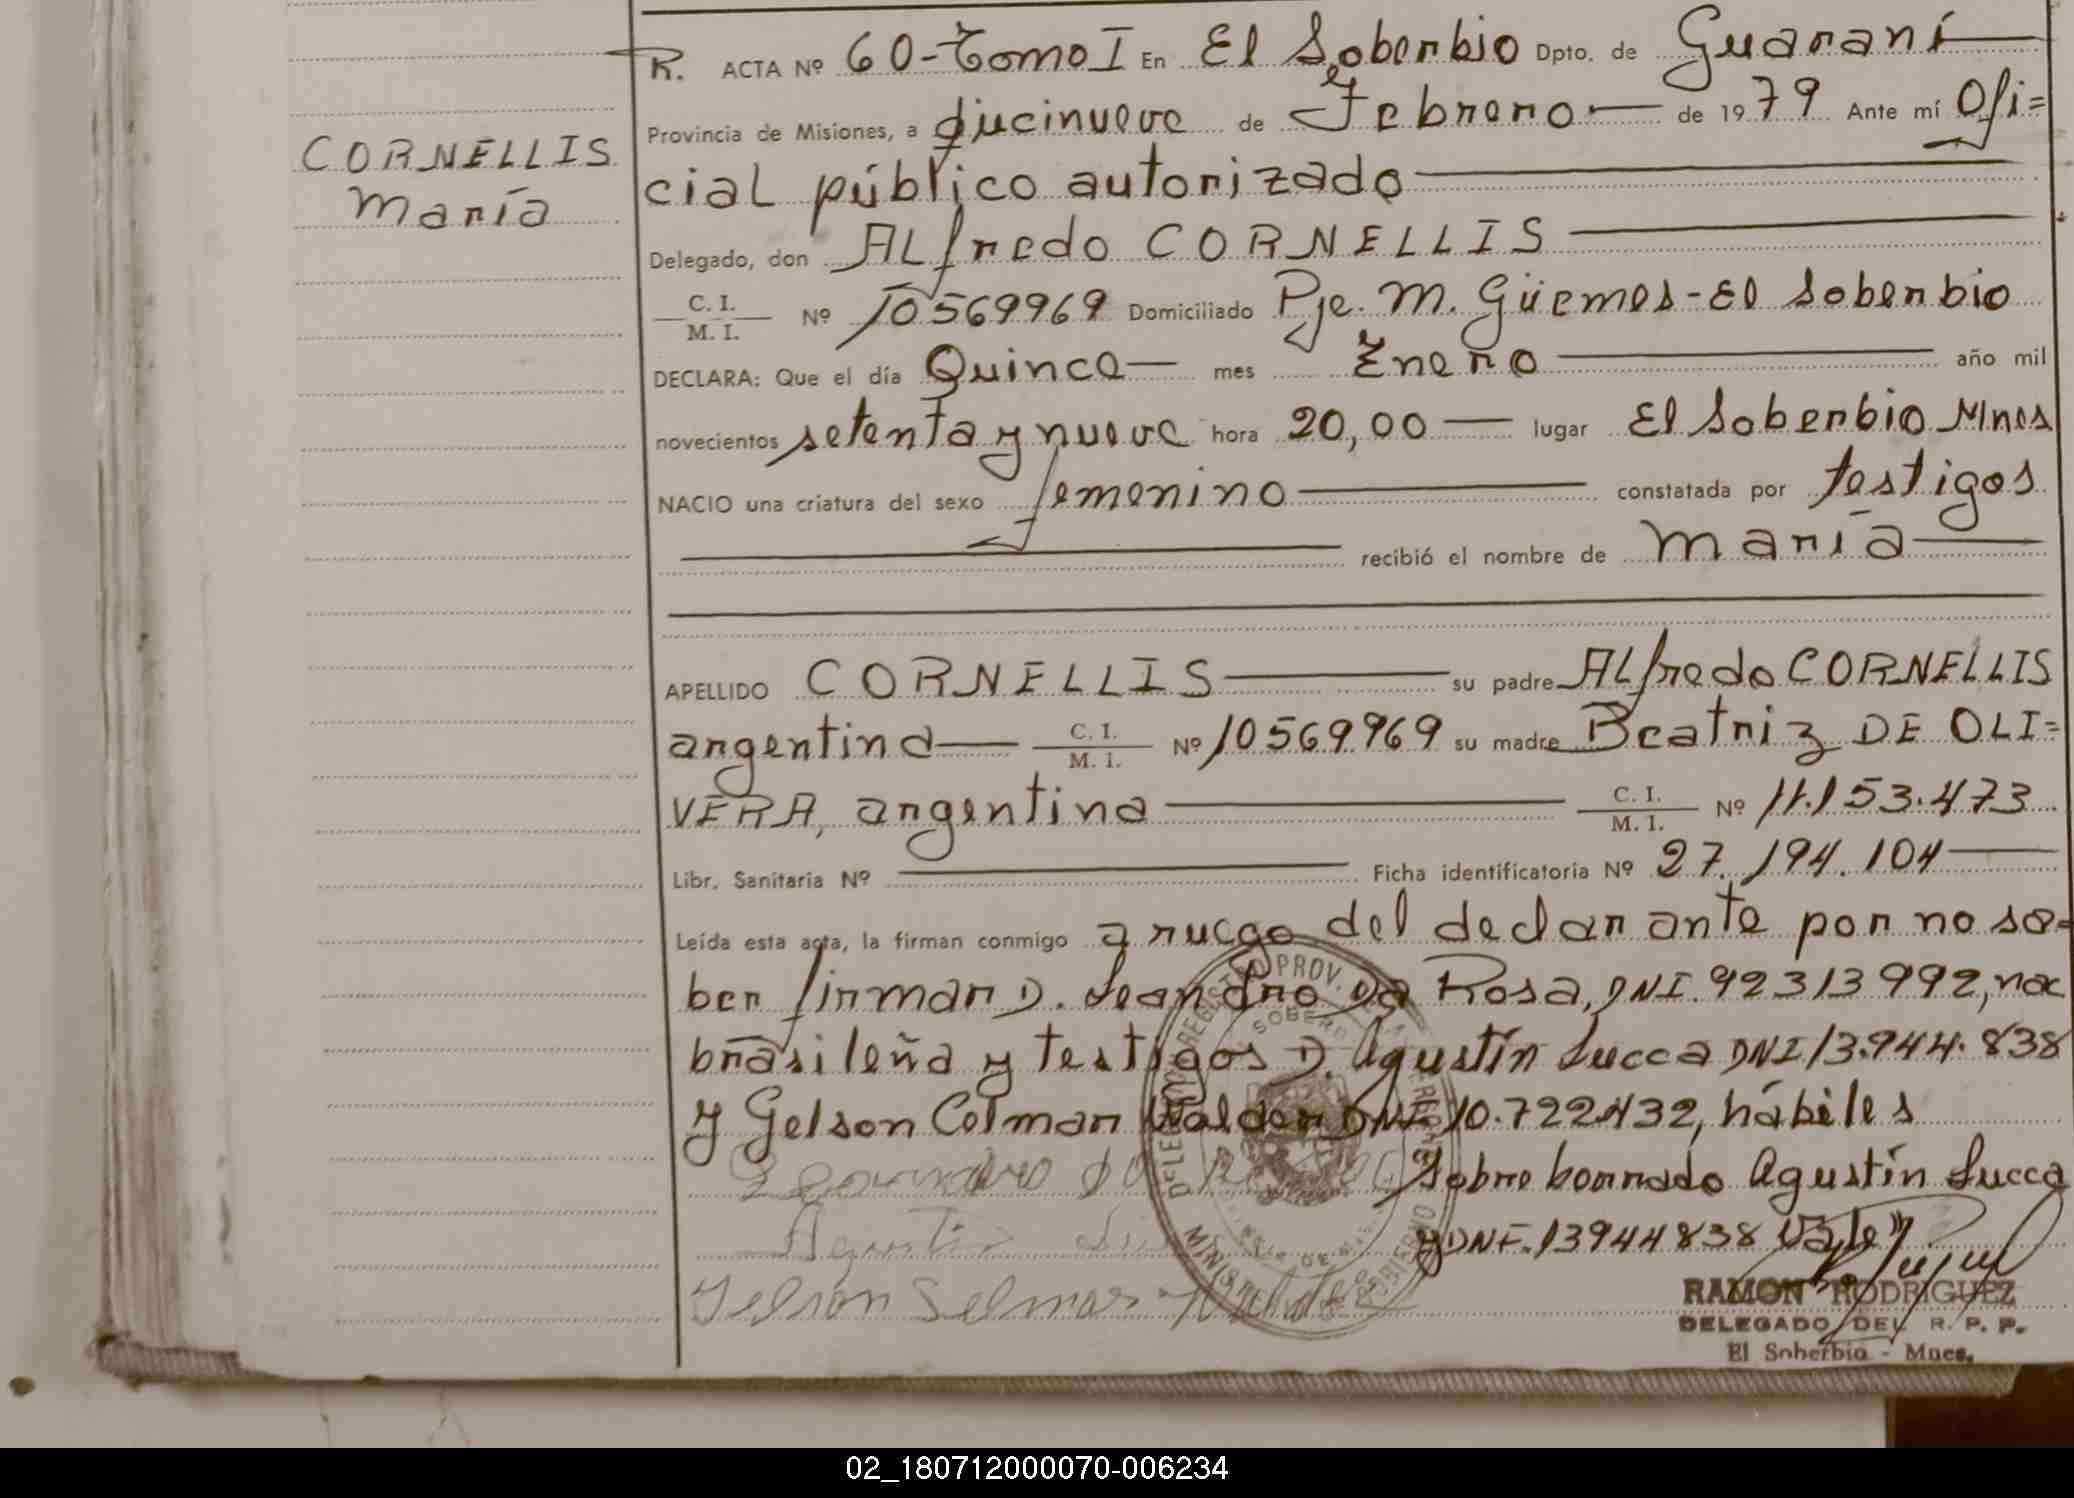 CORNELLIS
María
R. ACTA Nº 60-Tomo I En El Soberbio Dpto. de Guaraní
Provincia de Misiones, a diecinueve de Febrero de 1979 Ante mí Ofi=
cial público autorizado
Delegado, don ALfredo CORNELLIS
C. I.
M. I. Nº 10569969 Domiciliado Pje. M. Güemes-El Soberbio
DECLARA: Que el día Quince mes Enero año mil
novecientos setenta y nueve hora 20,00 lugar El Soberbio Mnes
NACIO una criatura del sexo femenino constatada por testigos
recibió el nombre de María
APELLIDO CORNELLIS su padre ALfredo CORNELLIS
argentina C. I.
M. I. Nº 10569969 su madre Beatriz DE OLI=
VERA, argentina C. I.
M. I. Nº 11.153.473
Libr. Sanitaria Nº Ficha identificatoria Nº 27.194.104
Leída esta acta, la firman conmigo a ruego del declarante por no sa=
ber firmar D. Leandro Da Rosa, DNI. 92313992, nac
brasileña y testigos D. Agustín Lucca DNI 13.944.838
y Gelson Celmar Walder DNI 10.722432, hábiles
Sobre borrado Agustín Lucca
y DNI. 13944838 Vale"
Agustin
Gelson Selmar
DELEG REGISTRO PROV.
SOBERB
MINIST GOBIERNO
RAMON RODRIGUEZ
DELEGADO DEL R. P. P.
El Soberbio - Mnes.
02_180712000070-006234